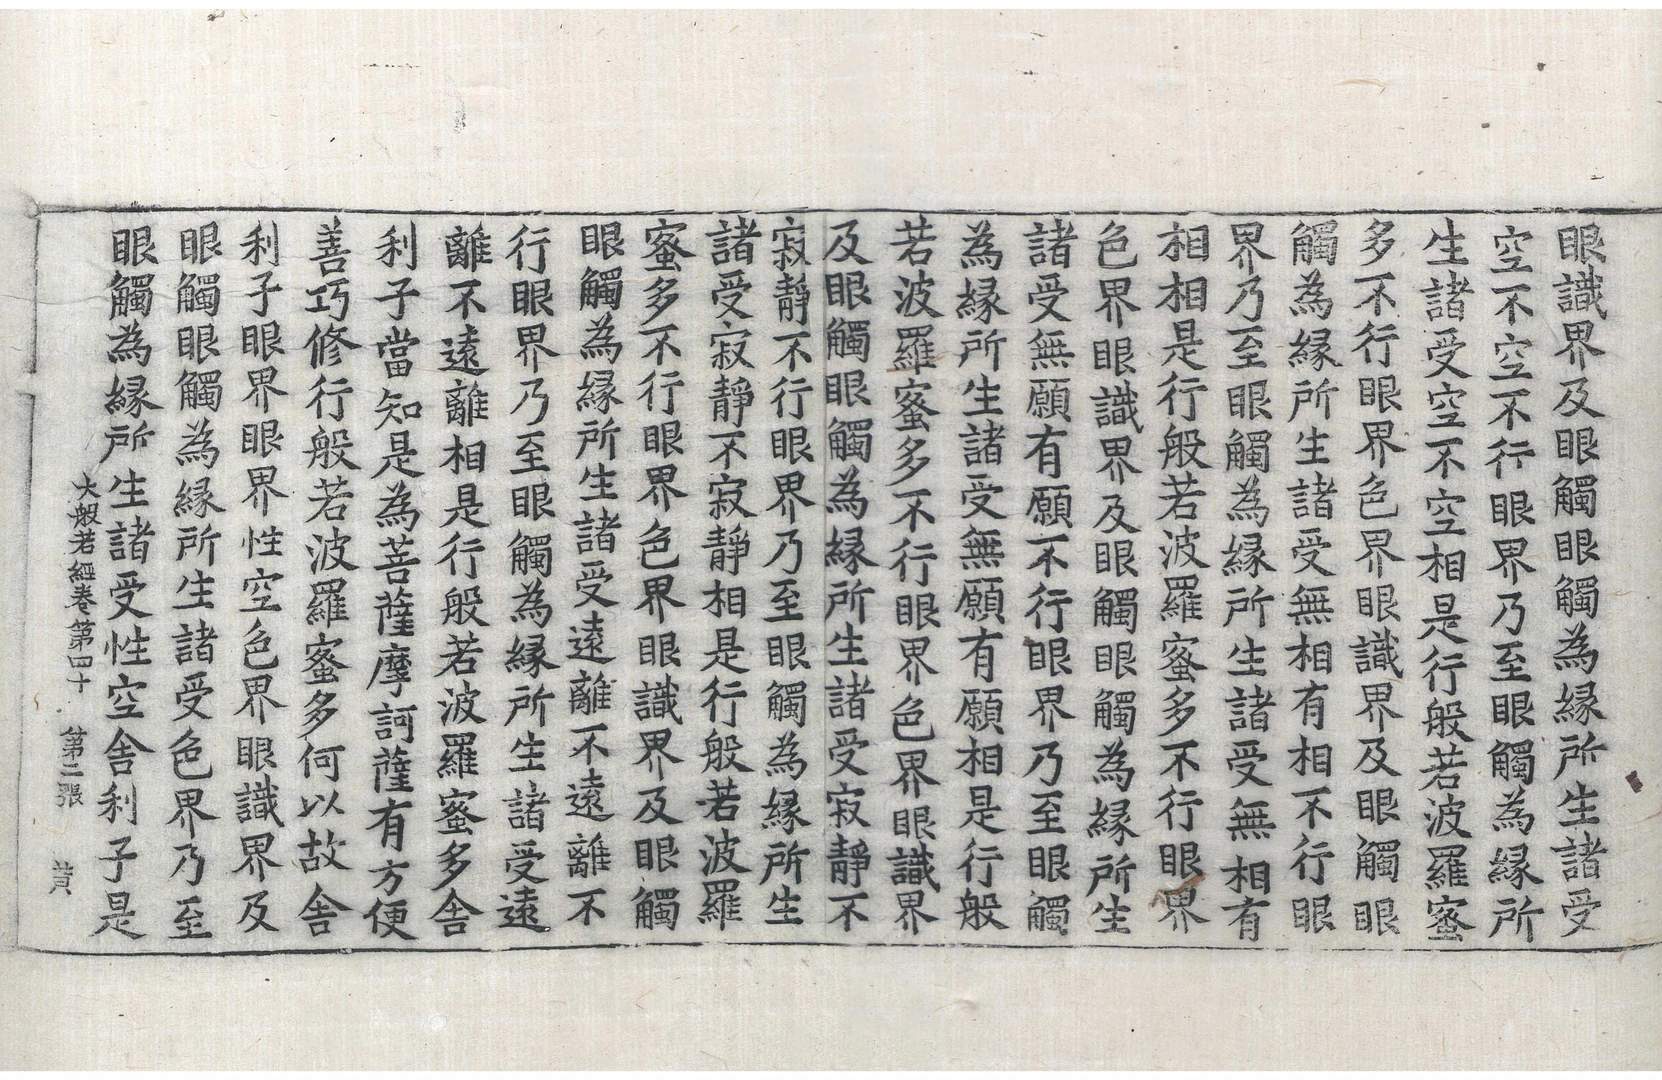 眼識界及眼觸眼觸為縁所生諸受
空不空不行眼界乃至眼觸為縁所
生諸受空不空相是行般若波羅蜜
多不行眼界色界眼識界及眼觸眼
觸為縁所生諸受無相有相不行眼
界乃至眼觸為縁所生諸受無相有
相相是行般若波羅蜜多不行眼界
色界眼識界及眼觸眼觸為縁所生
諸受無願有願不行眼界乃至眼觸
為縁所生諸受無願有願相是行般
若波羅蜜多不行眼界色界眼識界
及眼觸眼觸為縁所生諸受寂靜不
寂靜不行眼界乃至眼觸為縁所生
諸受寂靜不寂靜相是行般若波羅
蜜多不行眼界色界眼識界及眼觸
眼觸為縁所生諸受遠離不遠離不
行眼界乃至眼觸為縁所生諸受遠
離不遠離相是行般若波羅蜜多舍
利子當知是為菩薩摩訶薩有方便
善巧修行般若波羅蜜多何以故舍
利子眼界眼界性空色界眼識界及
眼觸眼觸為縁所生諸受色界乃至
眼觸為縁所生諸受性空舍利子是
大般若經卷第四十 第二張 黄